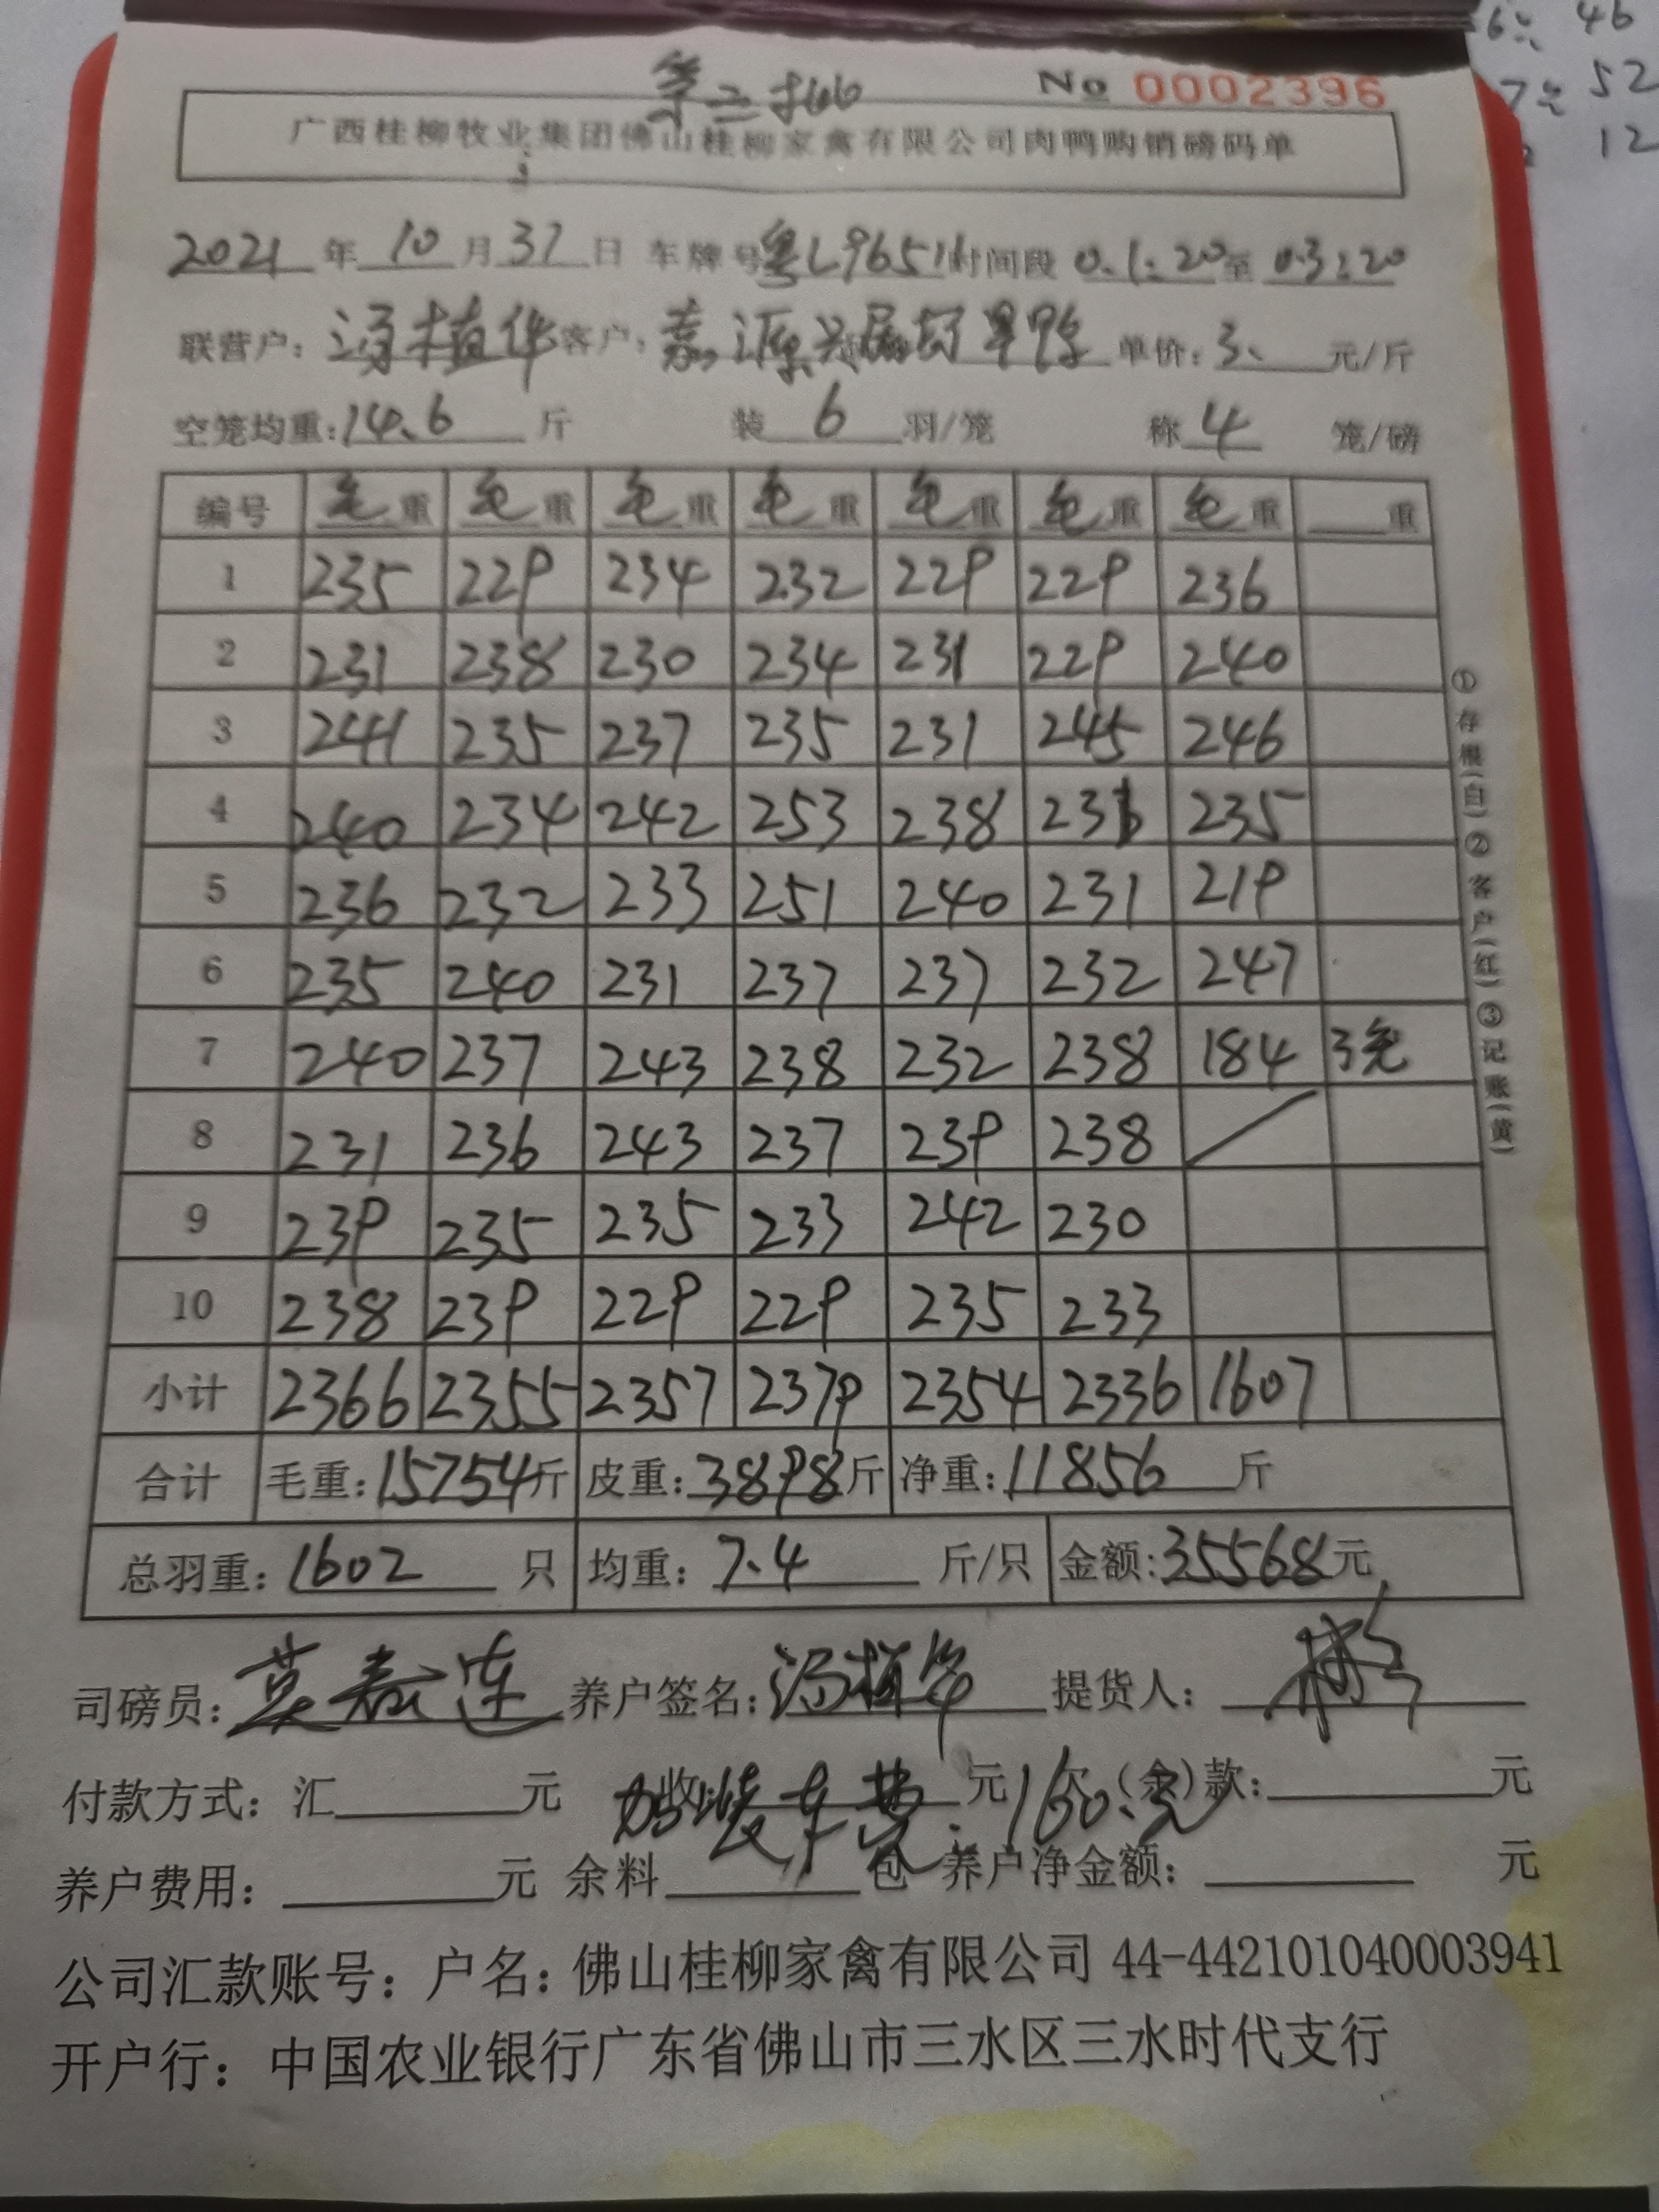 6 46
7 52
12
第二批
No 0002396
广西桂柳牧业集团佛山桂柳家禽有限公司肉鸭购销磅码单
2021年10月31日 车牌号粤L96511时间段 0.1:20至03:20
联营户：汤植华客户：嘉源兴 单价：3.元/斤
空笼均重：14.6斤 装6羽/笼 称4笼/磅
编号 毛重 毛重 毛重 毛重 毛重 毛重 毛重 重
1 235 229 234 232 229 229 236
2 231 238 230 234 231 229 240
3 241 235 237 235 231 245 246
4 240 234 242 253 238 231 235
5 236 232 233 251 240 231 219
6 235 240 231 237 237 232 247
7 240 237 243 238 232 238 184 3笼
8 231 236 243 237 239 238
9 239 235 235 233 242 230
10 238 239 229 229 235 233
小计 2366 2355 2357 2379 2354 2336 1607
合计 毛重：15754斤 皮重：3898斤 净重：11856斤
总羽重：1602只 均重：7.4斤/只 金额：35568元
司磅员：莫嘉连 养户签名：汤植华 提货人：
付款方式：汇元 收元 欠(余)款：元
加装车费：160.元
养户费用：元 余料包 养户净金额：元
公司汇款账号：户名：佛山桂柳家禽有限公司 44-442101040003941
开户行：中国农业银行广东省佛山市三水区三水时代支行
①存根(白)②客户(红)③记账(黄)